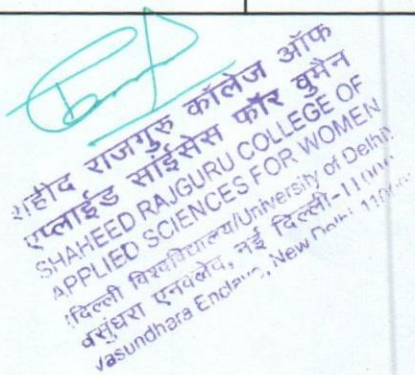 शहीद राजगुरु कॉलेज ऑफ
एप्लाईड साईंसेस फॉर वुमैन
SHAHEED RAJGURU COLLEGE OF
APPLIED SCIENCES FOR WOMEN
दिल्ली विश्वविद्यालय/University of Delhi
वसुंधरा एनक्लेव, नई दिल्ली-110
Vasundhara Enclave, New Delhi 110